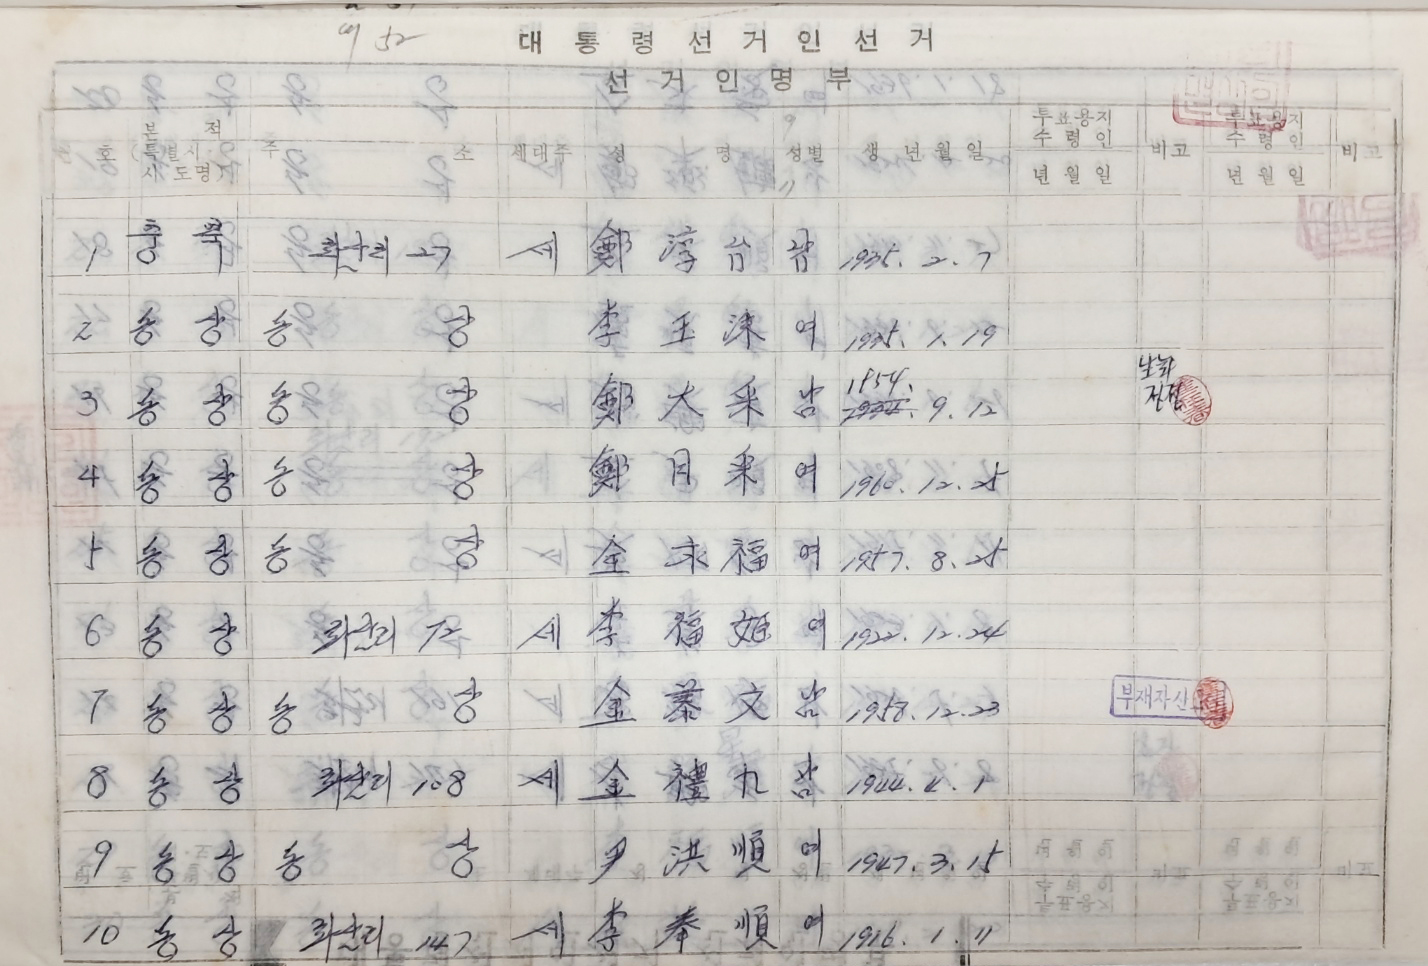 52
대통령선거인선거
선거인명부
번호 본적 (특별시·시도명) 주소 세대주 성명 성별 생년월일 투표용지 수령인 년월일 비고 투표용지 수령인 년월일 비고
1 충북 화산리 27 세 鄭淳台 남 1935. 2. 7
2 승상 승상 李玉 여 1935. 1. 19
3 승상 승상 鄭大采 남 1954. 9. 12
4 승상 승상 鄭月采 여 1960. 12. 25
5 승상 승상 金永福 여 1957. 8. 25
6 승상 화산리 72 세 李福姬 여 1922. 12. 24
7 승상 승상 金文 남 1958. 12. 23 부재자신
8 승상 화산리 108 세 金禮九 남 1944. 4. 1
9 승상 승상 尹洪順 여 1947. 3. 15
10 승상 화산리 147 세 李奉順 여 1916. 1. 11